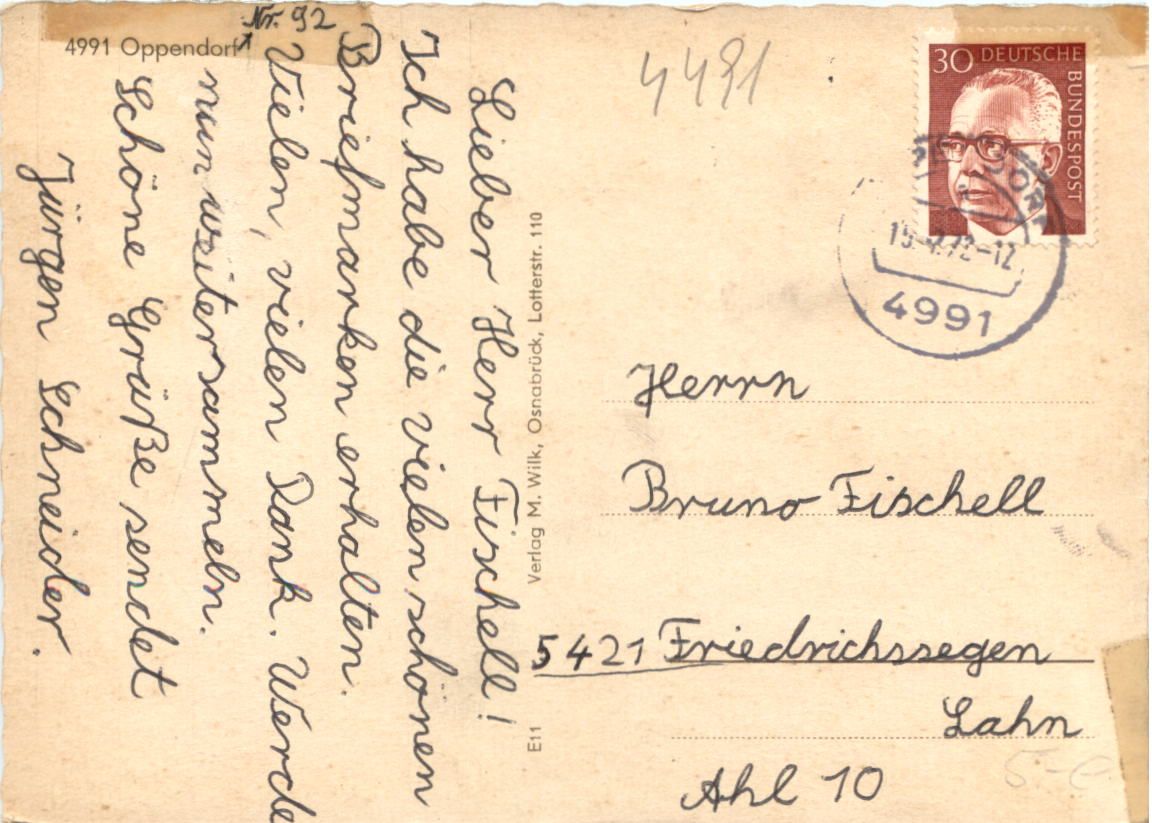 Nr. 92
4991 Oppendorf
Lieber Herr Fischell!
Ich habe die vielen schönen
Briefmarken erhalten.
Vielen, vielen Dank. Werde
nun weitersammeln.
Schöne Grüße sendet
Jürgen Schneider.
E11
Verlag M. Wilk, Osnabrück, Lotterstr. 110
4491
30 DEUTSCHE
BUNDESPOST
72-12
4991
Herrn
Bruno Fischell
5421 Friedrichssegen
Lahn
Ahl 10